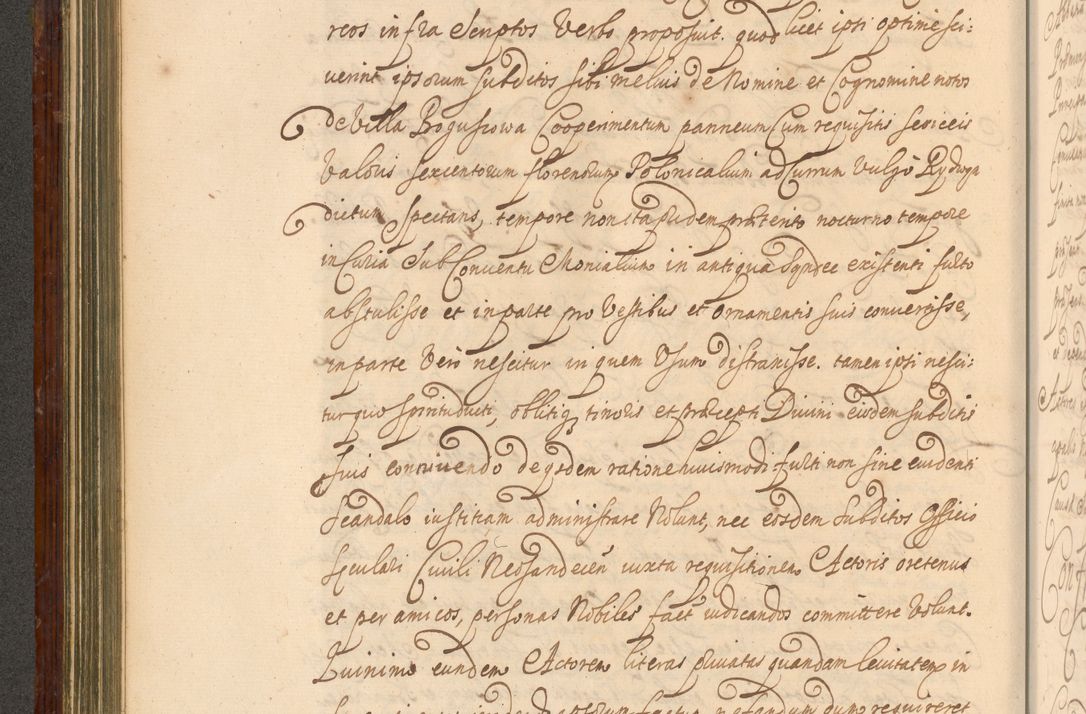 reos infra Scriptos Verbo proposuit. quod licet ipsi optime sci:
uerint ipsorum subditos sibi melius de Nomine et Cognomine notos
de Villa Bogusiowa Cooperimentum panneum Cum requisitis sericeis
Valoris sexcentorum florenorum Polonicalium ad Currum Vulgo Rydwan
dictum spectans, tempore non ita pridem præterito nocturno tempore
in Curia Sub Conventu Monialium in antiqua Syndec existenti furto
abstulisse et in parte pro Vestibus et Ornamentis suis convertisse,
in parte Vero nescitur in quem Usum distraxisse. tamen ipsi nesci:
tur quo spiritu ducti, obliti timoris et præcepti Divini eisdem subditis
suis connivendo de eadem ratione huiusmodi furti non sine evidenti
Scandalo iustitiam administrare Nolunt, nec eosdem Subditos Officio
Sæculari Civili Neosandecen iuxta requisitionem Actoris oretenus
et per amicos, personas Nobiles fact iudicandos committere Volunt.
Quinimo eundem Actorem literas privatas quandam levitatem in